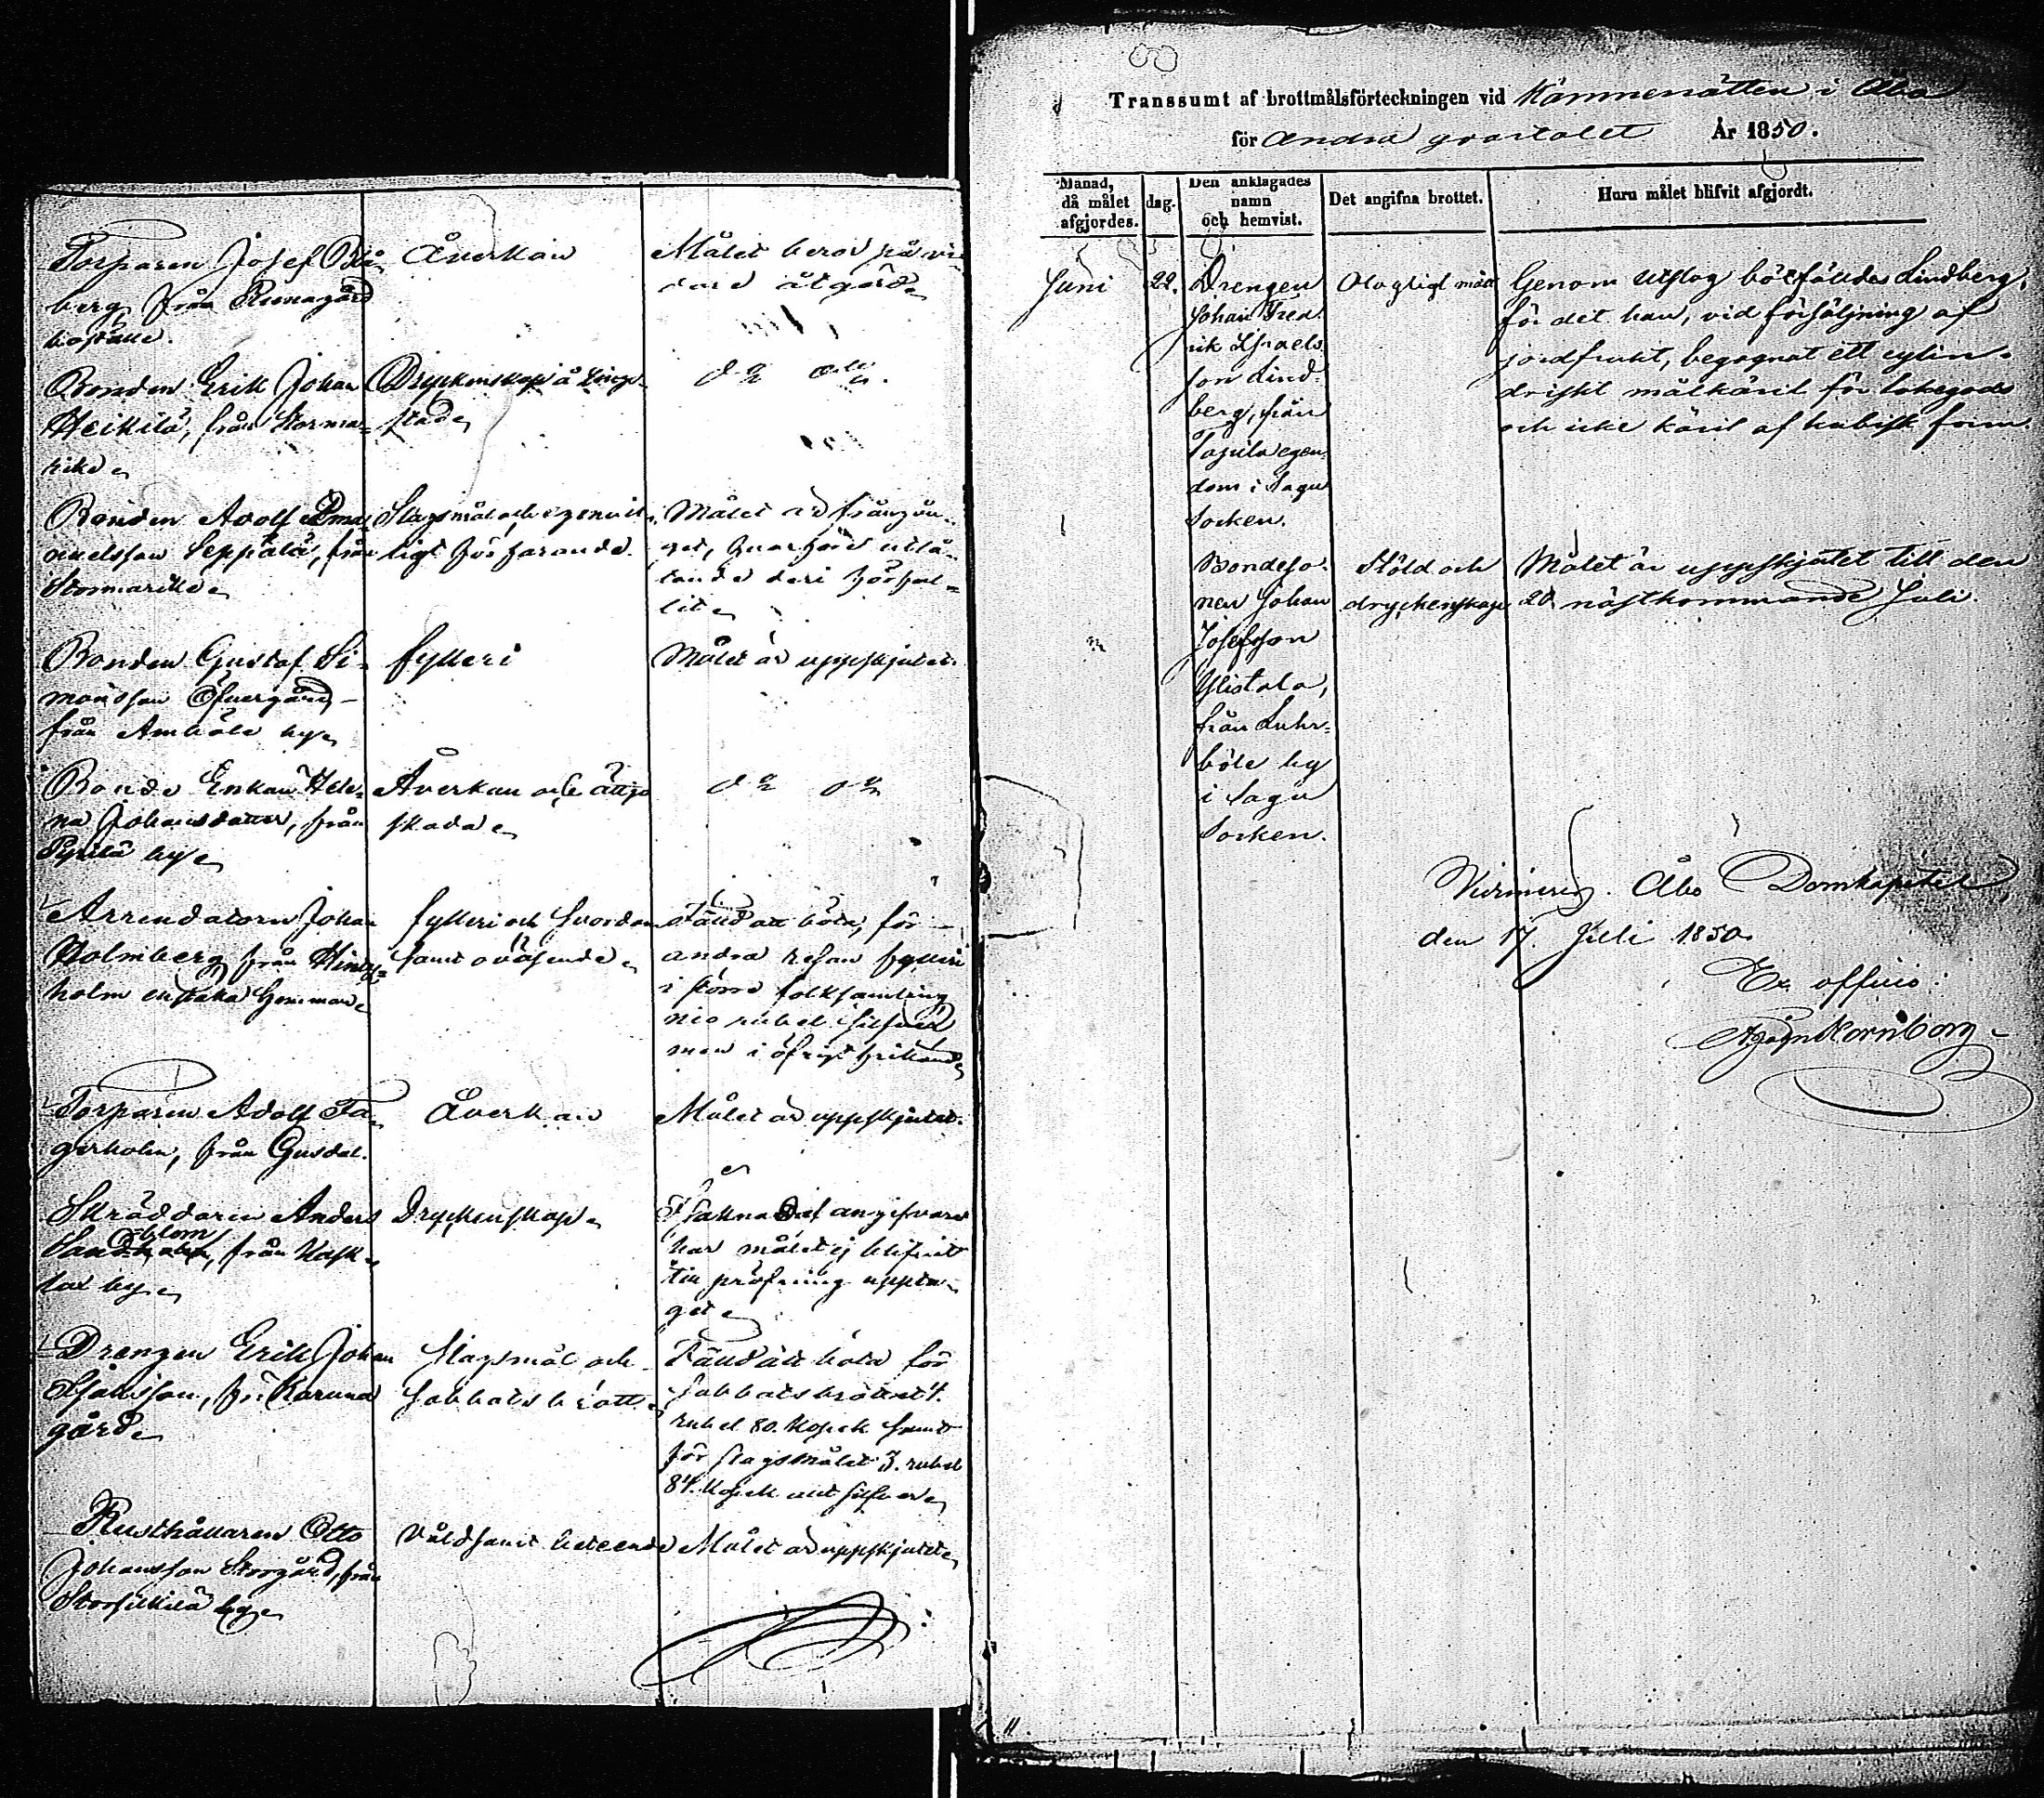 Torparen Josef Blå-
berg från Runagård
boställe.
Åverkan
Målet beror på vi-
dare åtgärd
Bonden Erik Johan
Heikilä, från Storma-
rike
Dryckenskap å tings-
stad
do do.
Bonden Adolf Ema-
nuelsson Seppälä, från
Stormarike
Slagsmål och egenvil-
ligt förfarande.
Målet är frångån-
get, hvarföre utlå-
tande deri förfal-
lit
Bonden Gustaf Si-
monsson Öfvergård
från Amböle by
fylleri
Målet är uppskjutet.
Bonde Enkan Hele-
na Johansdotter, från
Pyhilä by
Åverkan och
skada
do do
Arrendatorn Johan
Holmberg från
holm enstaka Hemman
fylleri och svordom
samt oväsende
Fälld att böta, för
andra resan fylleri
i större folksamling
nio rubel silfver
men i öfrigt frikänd
Torparen Adolf Fa-
gerholm, från Gesdal.
Åverkan
Målet är uppskjutet.
Skräddaren Anders
Sandblom, från Kask-
by
Dryckenskap
I saknad af angifvare
har målet ej blifvit
till pröfning uppta-
get
Drengen Erik Johan
från Karuna
gård
Slagsmål och
sabbatsbrott
Fälld att böta för
sabbatsbrottet 4.
rubel 80. Kopek samt
för slagsmålet 3. rubel
84. Kopek allt silfver
Rusthållaren Otto
Johansson Storgård, från
Storheikilä by
Våldsamt beteende
Målet är uppskjutet
Transsumt af brottmålsförteckningen vid Kämnersrätten i Åbo
för andra qvartalet År 1850.
Månad, då målet afgjordes.
dag.
Den anklagades namn och hemvist.
Det angifna brottet.
Huru målet blifvit afgjordt.
Juni
22.
Drengen
Johan Fred-
rik Israels-
son Lind-
berg, från
Tapila egen-
dom i Sagu
Socken.
Olagligt mått
Genom utslag bötfälldes Lindberg,
för det han, vid försäljning af
jordfrukt, begagnat ett cylin-
driskt målkäril för lösegods
och icke käril af kubisk form.
"
Bondeso-
nen Johan
Josefsson
Ylistalo,
från Luhr-
böle by
i Sagu
Socken.
Stöld och
dryckenskap
Målet är uppskjutet till den
20 nästkommande Juli.
Vidimeras. Åbo Domkapitel,
den 17. Juli 1850.
Ex officio: